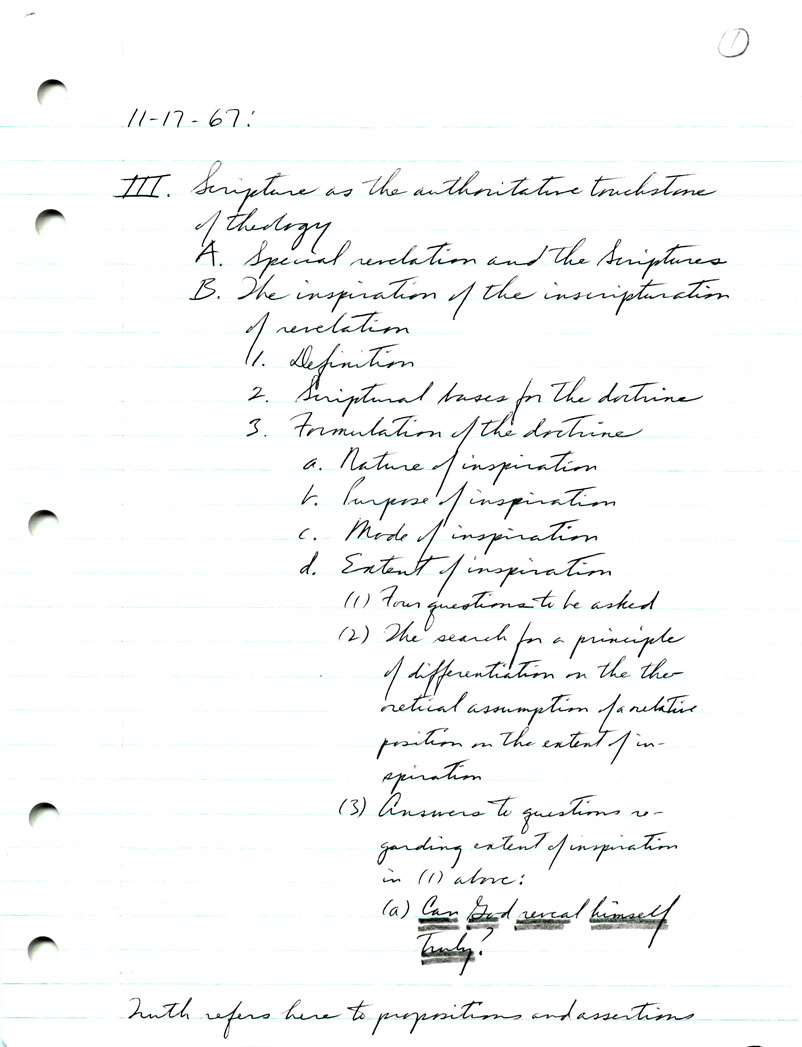 1
11-17-67:
III. Scripture as the authoritative touchstone
of theology
A. Special revelation and the Scriptures
B. The inspiration of the inscripturation
of revelation
1. Definition
2. Scriptural bases for the doctrine
3. Formulation of the doctrine
a. Nature of inspiration
b. Purpose of inspiration
c. Mode of inspiration
d. Extent of inspiration
(1) Four questions to be asked
(2) The search for a principle
of differentiation on the theo-
retical assumption of a relative
position on the extent of in-
spiration
(3) Answers to questions re-
garding extent of inspiration
in (1) above:
(a) Can God reveal himself
truly?
Truth refers here to propositions and assertions